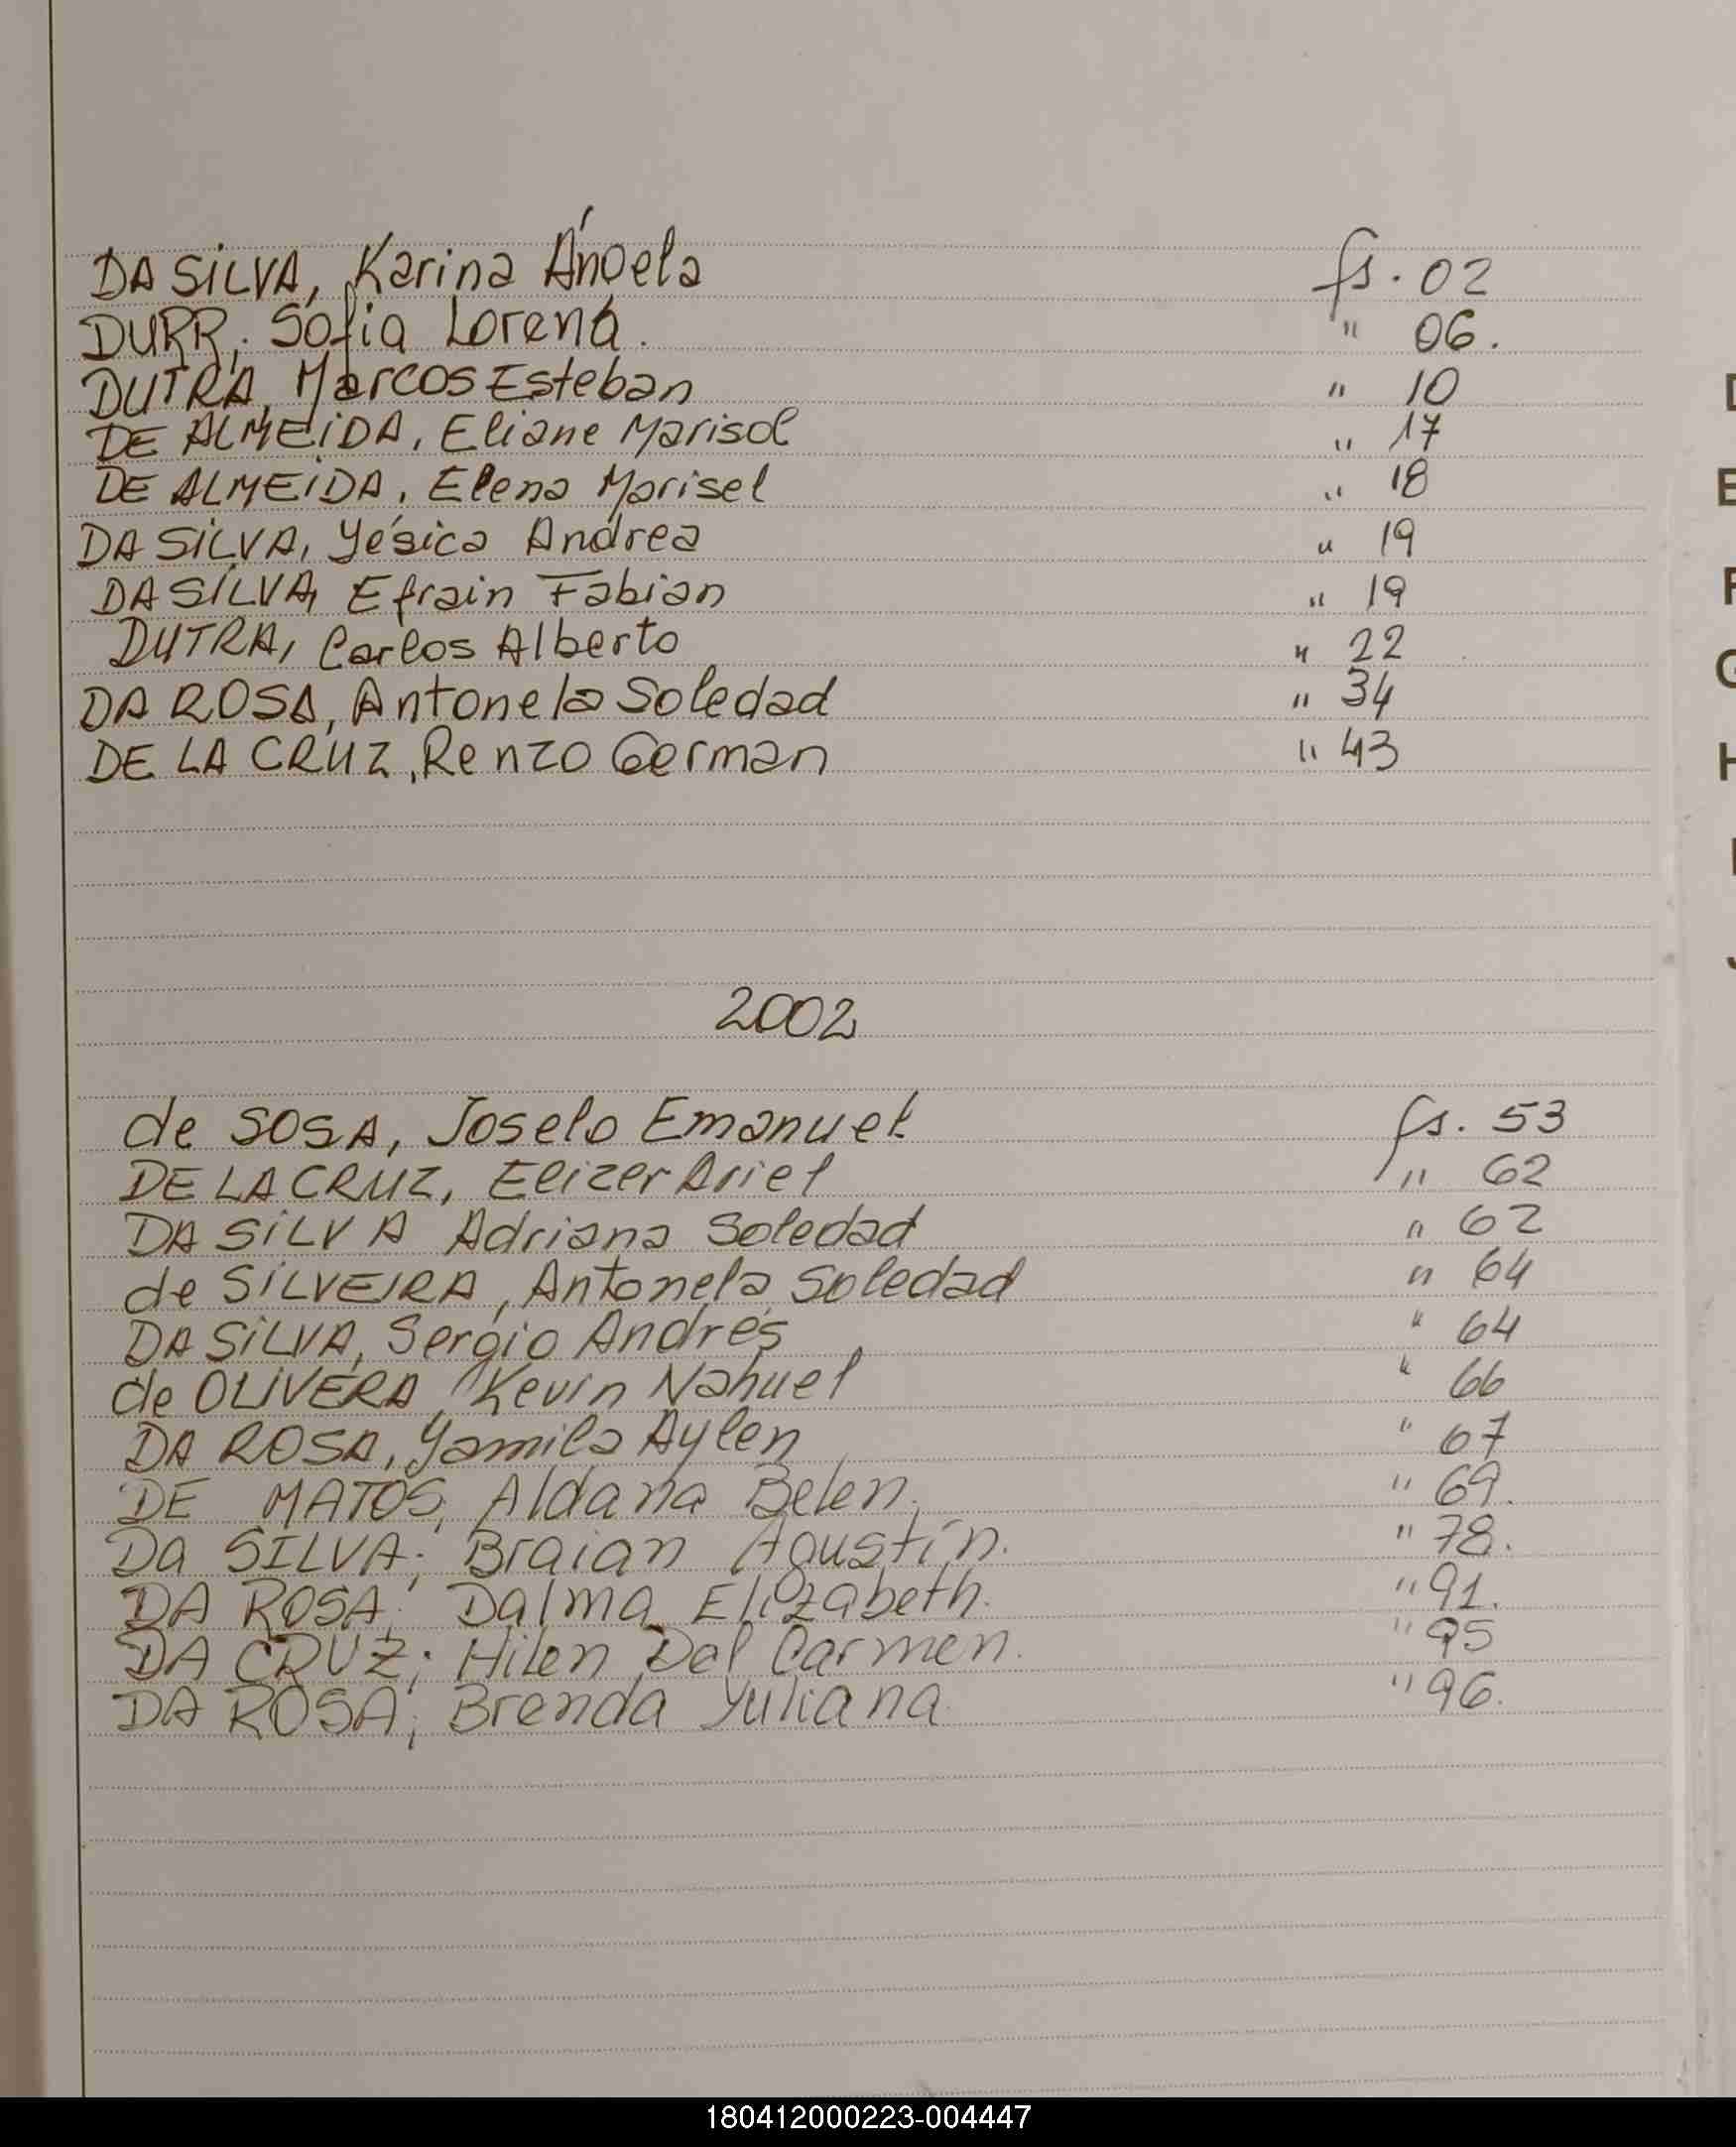 DA SILVA, Karina Ángela fs. 02
DURR; Sofia Lorena. " 06.
DUTRA, Marcos Esteban " 10
DE ALMEIDA, Eliane Marisol " 17
DE ALMEIDA, Elena Marisel " 18
DA SILVA, Yésica Andrea " 19
DA SILVA, Efrain Fabian " 19
DUTRA, Carlos Alberto " 22
DA ROSA, Antonela Soledad " 34
DE LA CRUZ, Renzo German " 43
2002
de SOSA, Joselo Emanuel fs. 53
DE LA CRUZ, Elizer Ariel " 62
DA SILVA Adriana Soledad " 62
de SILVEIRA, Antonela Soledad " 64
DA SILVA, Sergio Andrés " 64
de OLIVERA, Kevin Nahuel " 66
DA ROSA, Yamila Aylen " 67
DE MATOS; Aldana Belen. " 69.
Da SILVA; Braian Agustín. " 78.
DA ROSA; Dalma Elizabeth. " 91.
DA CRUZ; Hilen Del Carmen. " 95
DA ROSA; Brenda Yuliana " 96.
E
F
G
H
J
180412000223-004447